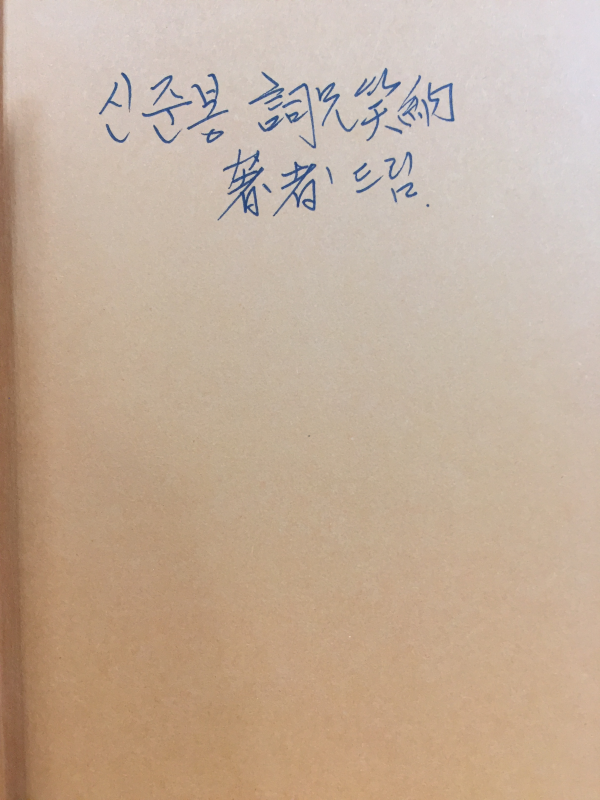 신준봉 詞兄笑納
著者 드림.